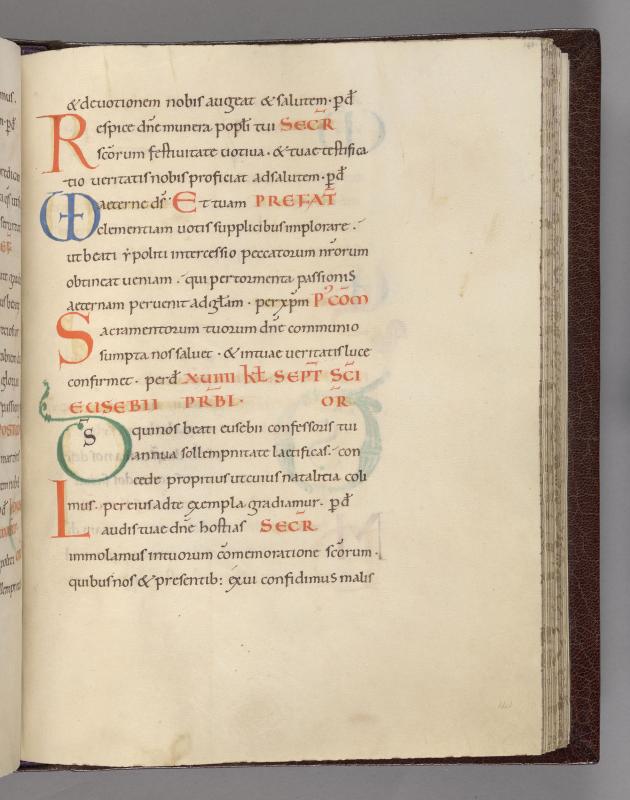 & deuotionem nobis augeat & salutem · p̱ dn̄
Respice dn̄e munera popłi tui SECR̄
scōrum festiuitate uotiua · & tuae testifica
tio ueritatis nobis proficiat ad salutem · p̱ dn̄
aeterne ds̄ · Et tuam PREFAT̄
clementiam uotis supplicibus implorare ·
ut beati yppoliti intercessio peccatorum nr̄orum
obtineat ueniam · qui per tormenta passionis
aeternam peruenit ad głam · per xp̄m P̱ CŌM
Sacramentorum tuorum dn̄e communio
sumpta nos saluet · & in tuae ueritatis luce
confirmet · per dn̄ XVIIII kł SEPT̄ SC̄I
EUSEBII PR̄BI · OR̄
DS qui nos beati eusebii confessoris tui
annua sollempnitate laetificas · con
cede propitius ut cuius natalitia coli
mus · per eius ad te exempla gradiamur · p̱ dn̄
Laudis tuae dn̄e hostias SECR̄
immolamus in tuorum cōmemoratione scōrum ·
quibus nos & presentib: exui confidimus malis